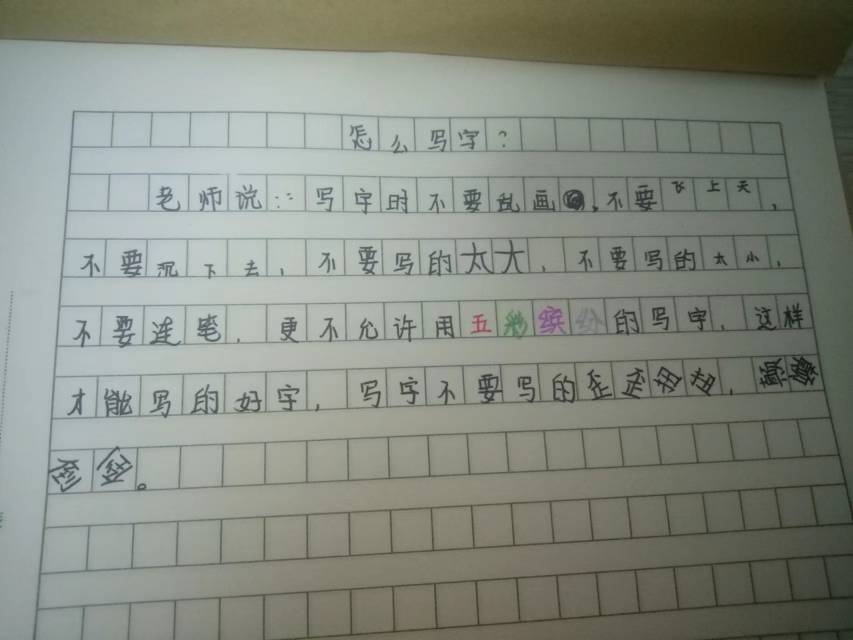 怎么写字？
老师说：写字时不要乱画，不要飞上天，
不要沉下去，不要写的太大，不要写的太小，
不要连笔，更不允许用五彩缤纷的写字，这样
才能写的好字，写字不要写的歪歪扭扭，颠
。